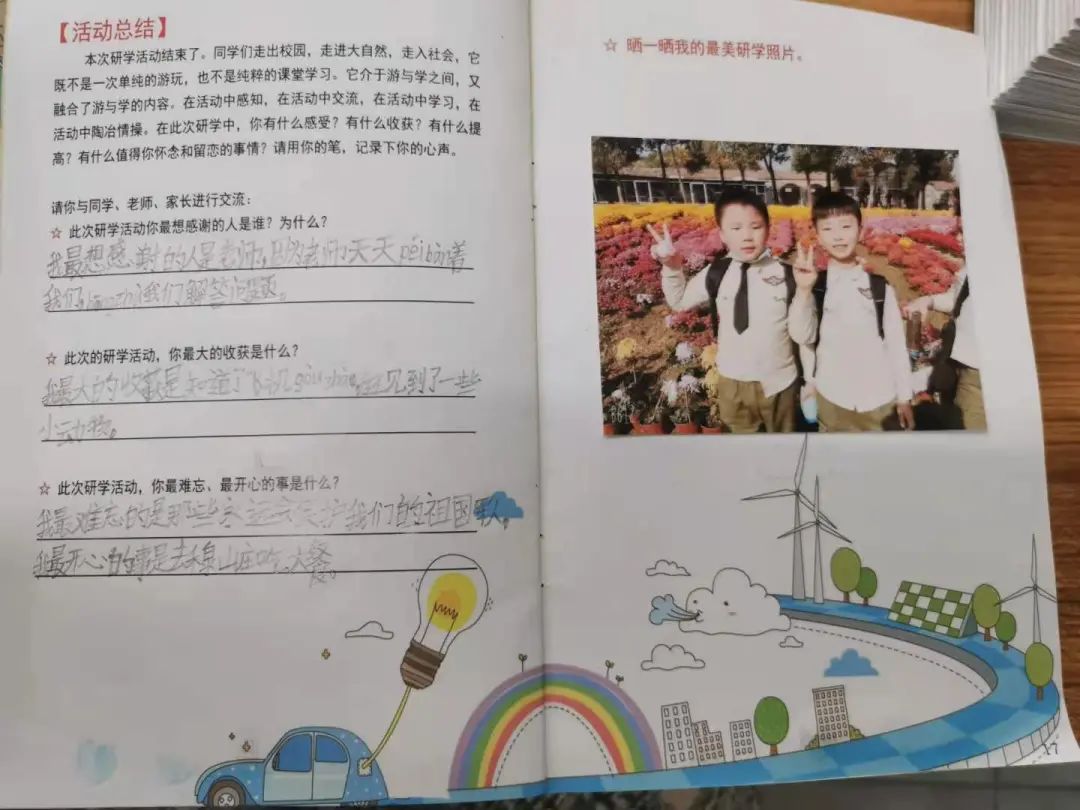 【活动总结】
本次研学活动结束了。同学们走出校园，走进大自然，走入社会，它
既不是一次单纯的游玩，也不是纯粹的课堂学习。它介于游与学之间，又
融合了游与学的内容。在活动中感知，在活动中交流，在活动中学习，在
活动中陶冶情操。在此次研学中，你有什么感受？有什么收获？有什么提
高？有什么值得你怀念和留恋的事情？请用你的笔，记录下你的心声。
请你与同学、老师、家长进行交流：
☆ 此次研学活动你最想感谢的人是谁？为什么？
我最想感谢的人是老师，因为老师天天péi bàn着
我们，我们解答问题。
☆ 此次的研学活动，你最大的收获是什么？
我最大的收获是知道了飞机gòu zào，见到了一些
小动物。
☆ 此次研学活动，你最难忘、最开心的事是什么？
我最难忘的是那些永远守护我们的祖国军人。
我最开心的事是去山庄吃大餐。
☆ 晒一晒我的最美研学照片。
17